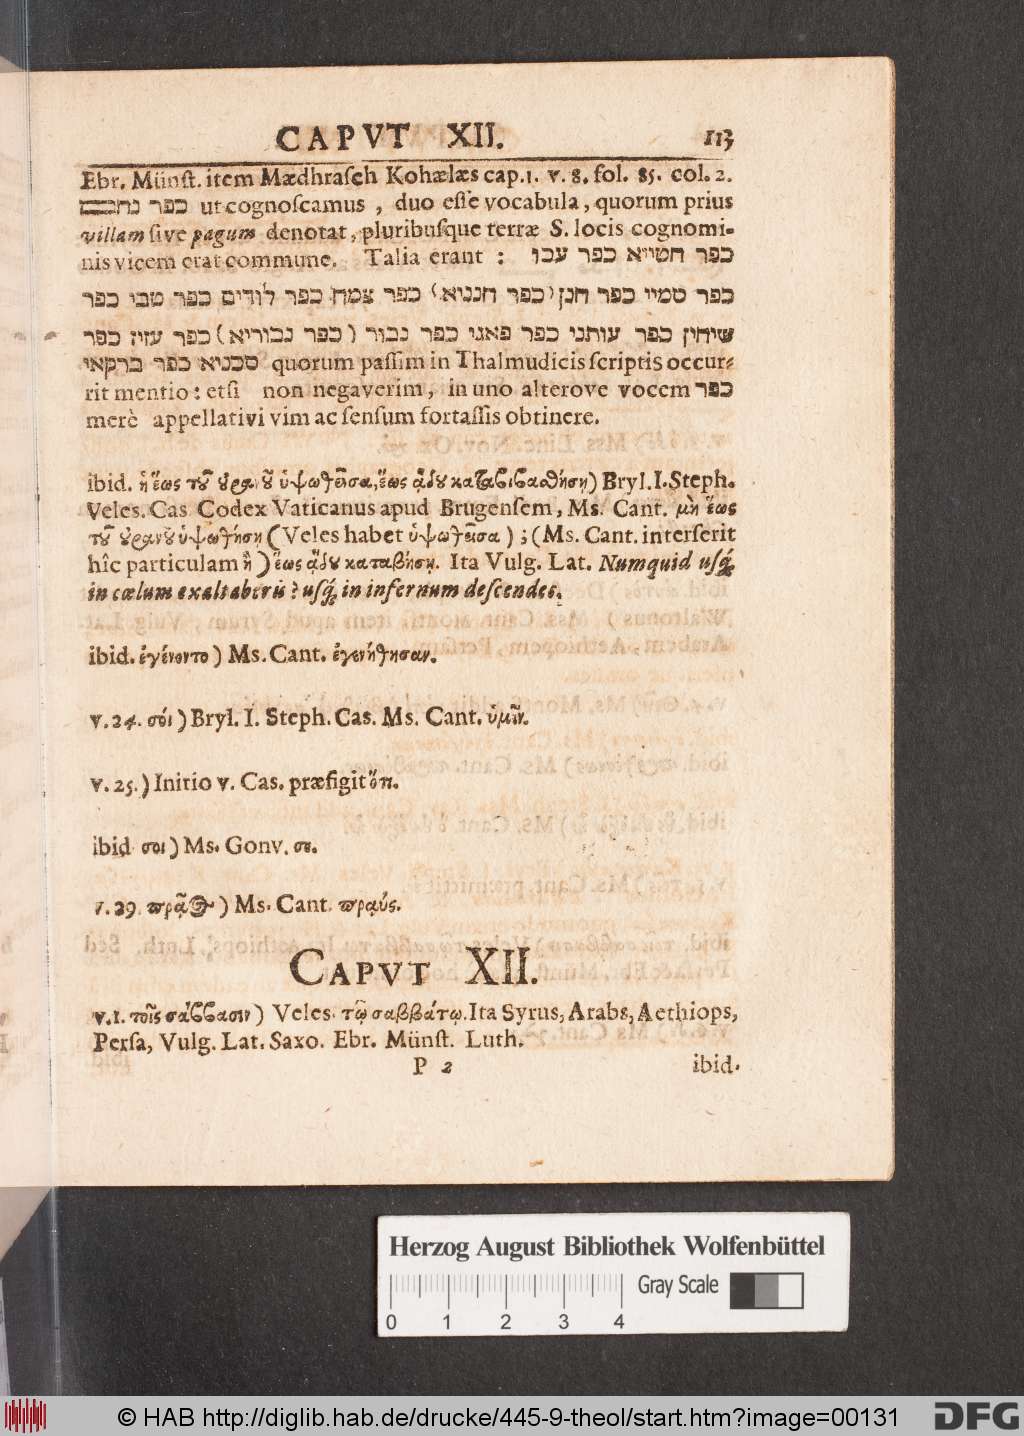 CAPVT XII. 113
Ebr. Münſt. item Mædhraſch Kohælæs cap.1. v. 8. fol. 85. col. 2.
כפר נחב ut cognoſcamus, duo eſſe vocabula, quorum prius
villam ſive pagum denotat, pluribuſque terræ S. locis cognomi-
nis vicem erat commune. Talia erant : כפר חטייא כפר עכו
כפר סמיי כפר חנן (כפר חנניא) כפר צמח כפר לודים כפר טבי כפר
שיחון כפר עותני כפר פאגי כפר נבור (כפר נבוריא) כפר עזיז כפר
סכניא כפר ברקאי quorum paſſim in Thalmudicis ſcriptis occur-
rit mentio : etſi non negaverim, in uno alterove vocem כפר
merè appellativi vim ac ſenſum fortaſſis obtinere.
ibid. ἡ ἕως τοῦ οὐρανοῦ ὑψωθεῖσα, ἕως ᾅδου καταβιβαθήσῃ) Bryl. I. Steph.
Veles. Cas Codex Vaticanus apud Brugenſem, Ms. Cant. μὴ ἕως
τοῦ οὐρανοῦ ὑψωθήσῃ (Veles habet ὑψωθεῖσα) ; (Ms. Cant. interſerit
hîc particulam ἢ) ἕως ᾅδου καταβήσῃ. Ita Vulg. Lat. Numquid uſq́;
in cœlum exaltaberis ? uſq́; in infernum deſcendes.
ibid. ἐγένοντο) Ms. Cant. ἐγενήθησαν.
v. 24. σόι) Bryl. I. Steph. Cas. Ms. Cant. ὑμῖν.
v. 25.) Initio v. Cas. præfigit ὅτι.
ibid σοι) Ms. Gonv. συ.
v. 29. πρᾷος) Ms. Cant. πραΰς.
CAPVT XII.
v. 1. τοῖς σάββασιν) Veles. τῷ σαββάτῳ. Ita Syrus, Arabs, Aethiops,
Perſa, Vulg. Lat. Saxo. Ebr. Münſt. Luth.
P 2 ibid.
Herzog August Bibliothek Wolfenbüttel
Gray Scale
0 1 2 3 4
© HAB http://diglib.hab.de/drucke/445-9-theol/start.htm?image=00131
DFG